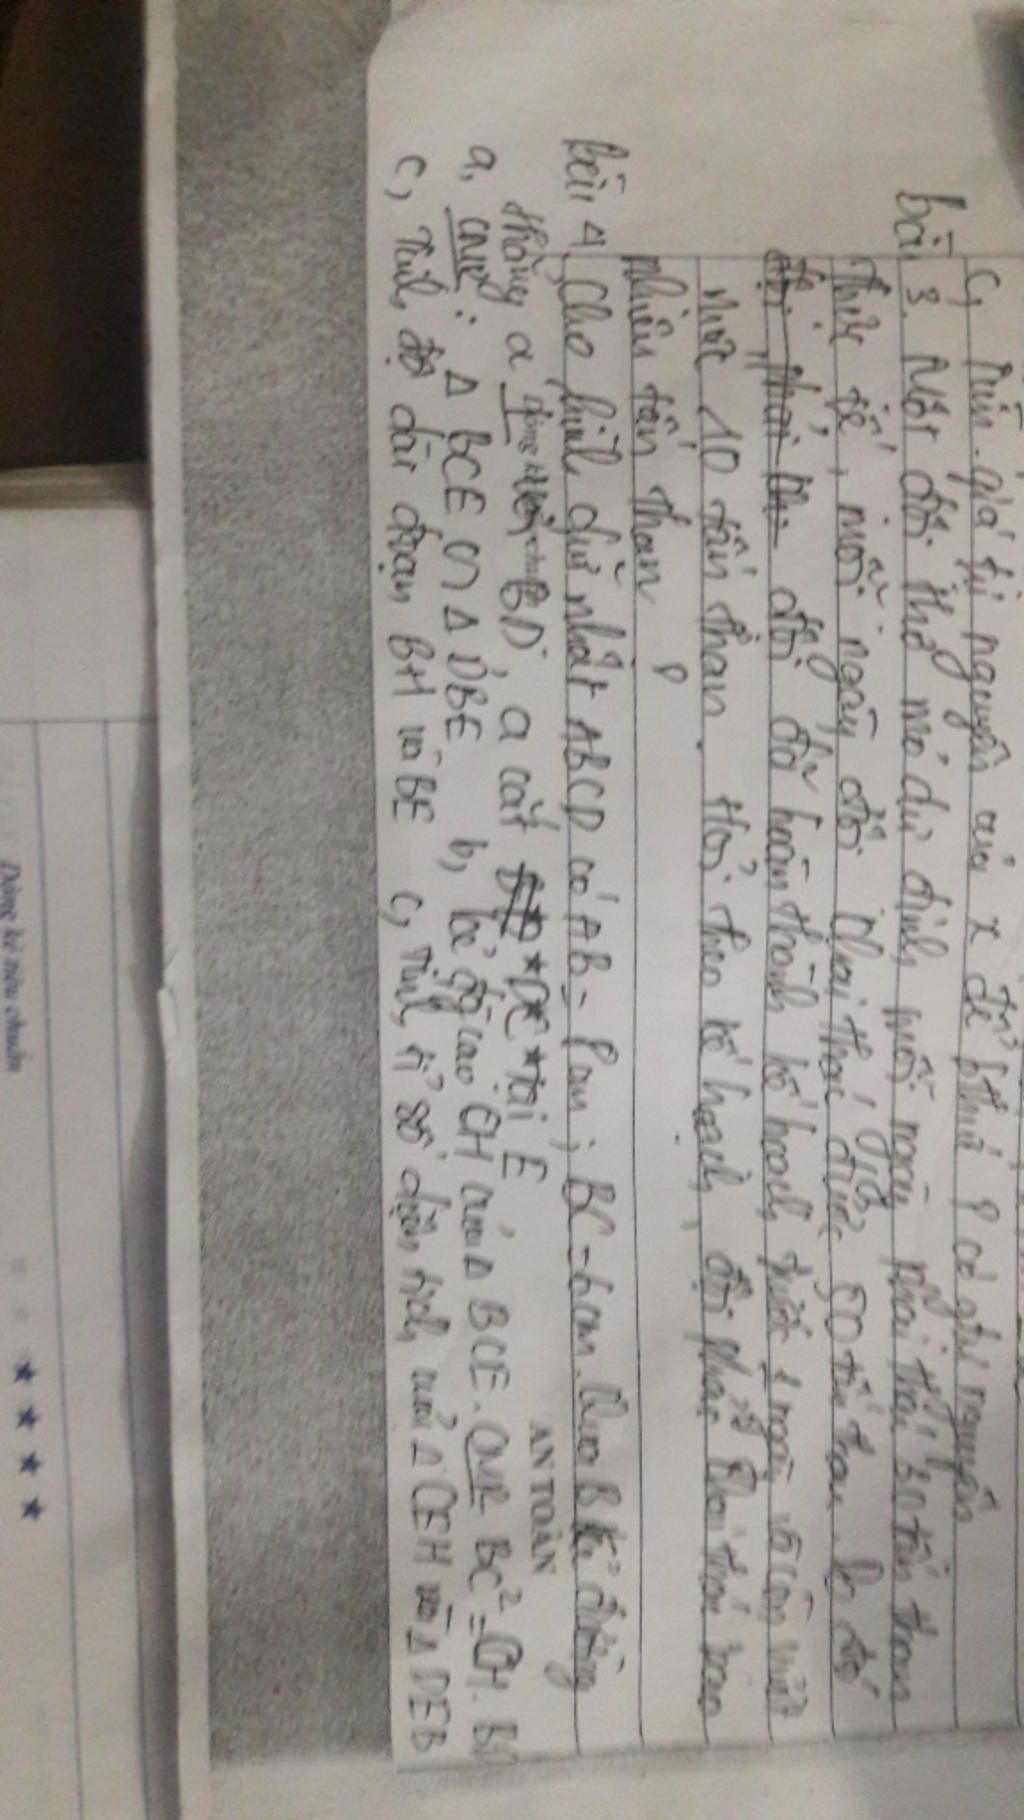 C, Tìm giá trị nguyên của x để bthức P có giá trị nguyên
bài 3. Một đội thợ mỏ dự định mỗi ngày phải 30 tấn than
Thực tế, mỗi ngày đội phải 50 tấn than do đó
đội đã hoàn thành kế hoạch trước 1 ngày và còn vượt
mức 10 tấn than. Hỏi theo kế hoạch, đội phải bao
nhiêu tấn than ?
bài 4. Cho hình chữ nhật ABCD có AB = 8cm; BC = 6cm. Qua B kẻ đường
thẳng a ⊥ BD, a cắt DC tại E
AN TOÀN
a, CMR: Δ BCE ∽ Δ DBE b, kẻ đg cao CH của Δ BCE. CMR BC² = CH. BD
c, Tính độ dài đoạn BH và BE C, Tính tỉ số diện tích của Δ CEH và Δ DEB
★ ★ ★ ★